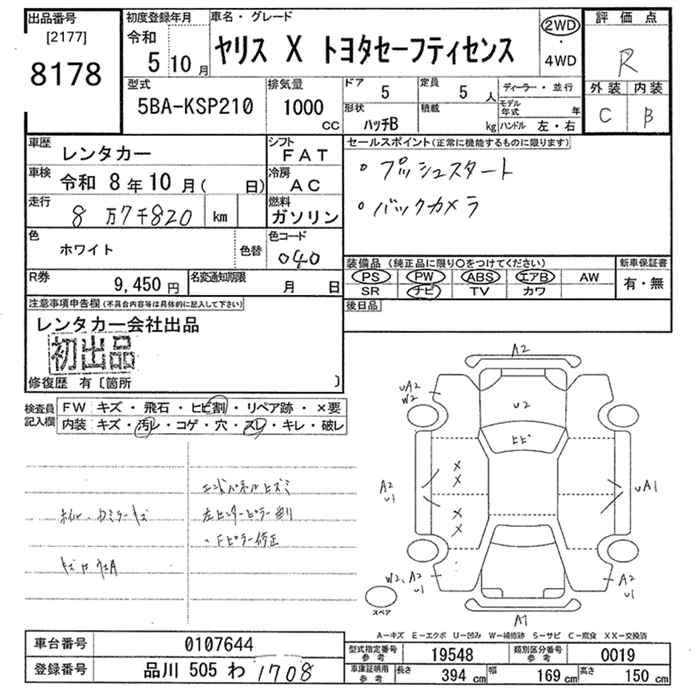 出品番号
[2177]
8178
初度登録年月
令和
5年10月
車名・グレード
ヤリス X トヨタセーフティセンス
2WD
・
4WD
評価点
R
外装 内装
C B
型式
5BA-KSP210
排気量
1000
cc
ドア 5
形状 ハッチB
定員 5 人
積載 kg
ディーラー・並行
モデル年式 年
ハンドル 左・右
車歴 レンタカー
シフト FAT
車検 令和 8年10月( 日)
冷房 AC
走行 8万7千820 km
燃料 ガソリン
色 ホワイト 色替
色コード 040
R券 9,450円
名変通知期限 月 日
セールスポイント(正常に機能するものに限ります)
・プッシュスタート
・バックカメラ
装備品(純正品に限り○をつけてください)
PS PW ABS エアB AW
SR ナビ TV カワ
新車保証書
有・無
後日品
注意事項申告欄(不具合内容等は具体的に記入して下さい)
レンタカー会社出品
初出品
修復歴 有〔箇所 〕
検査員記入欄
FW キズ・飛石・ヒビ割・リペア跡・×要
内装 キズ・汚レ・コゲ・穴・スレ・キレ・破レ
エンドパネルヒズミ
左センターピラー曲り
・Fピラー修正
A2
UA2
W2
U2
ヒビ
A2
A2
U1
×
×
×
×
UA1
W2, A2
U1
A2
U1
A1
スペア
A−キズ E−エクボ U−凹み W−補修跡 S−サビ C−腐食 XX−交換済
車台番号 0107644
登録番号 品川 505 わ 1708
型式指定番号 参考 19548
類別区分番号 参考 0019
車庫証明用 参考 長さ 394 cm 幅 169 cm 高さ 150 cm